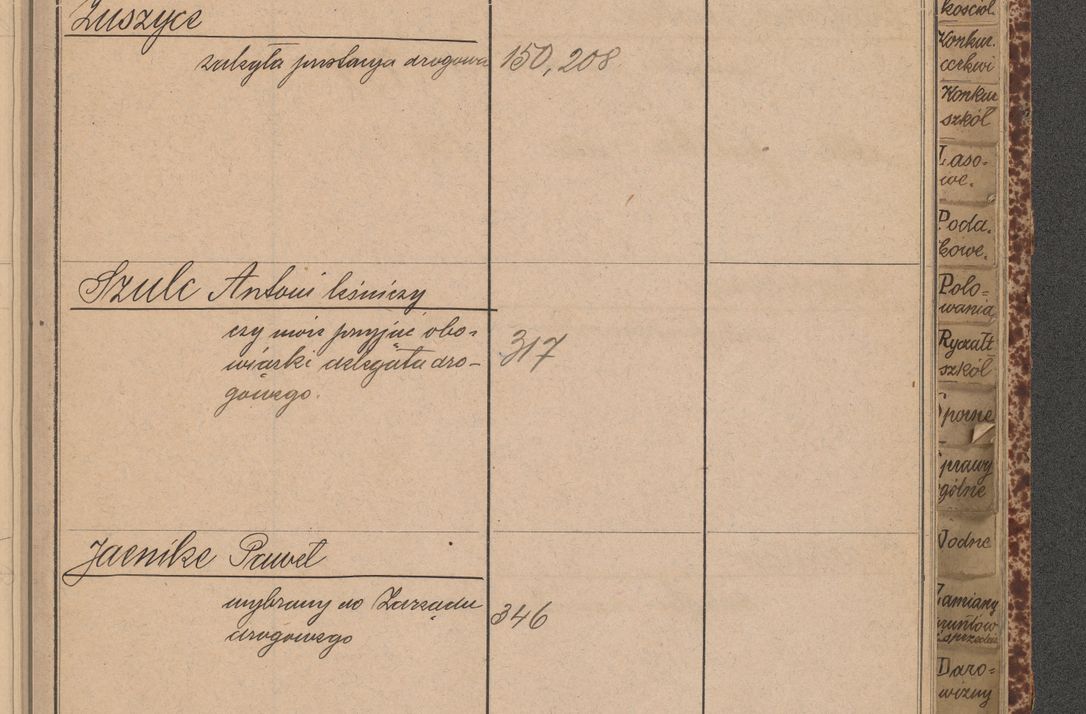 Zuszyce
zaległa prestacya drogowa 150, 208.
Szulc Antoni leśniczy
czy może przyjąć obo=
wiązki delegata dro- 317
gowego.
Jaenike Paweł
wybrany do Zarządu 346
drogowego
kościoł.
Konkur.
cerkwi
Konkur
szkół
Laso-
we.
Poda.
kowe.
Polo=
wania
Ryczałt
szkół
Sporne
Sprawy
ogólne
Wodne
Zamiany
gruntów
i sprzedaż
Daro=
wizny